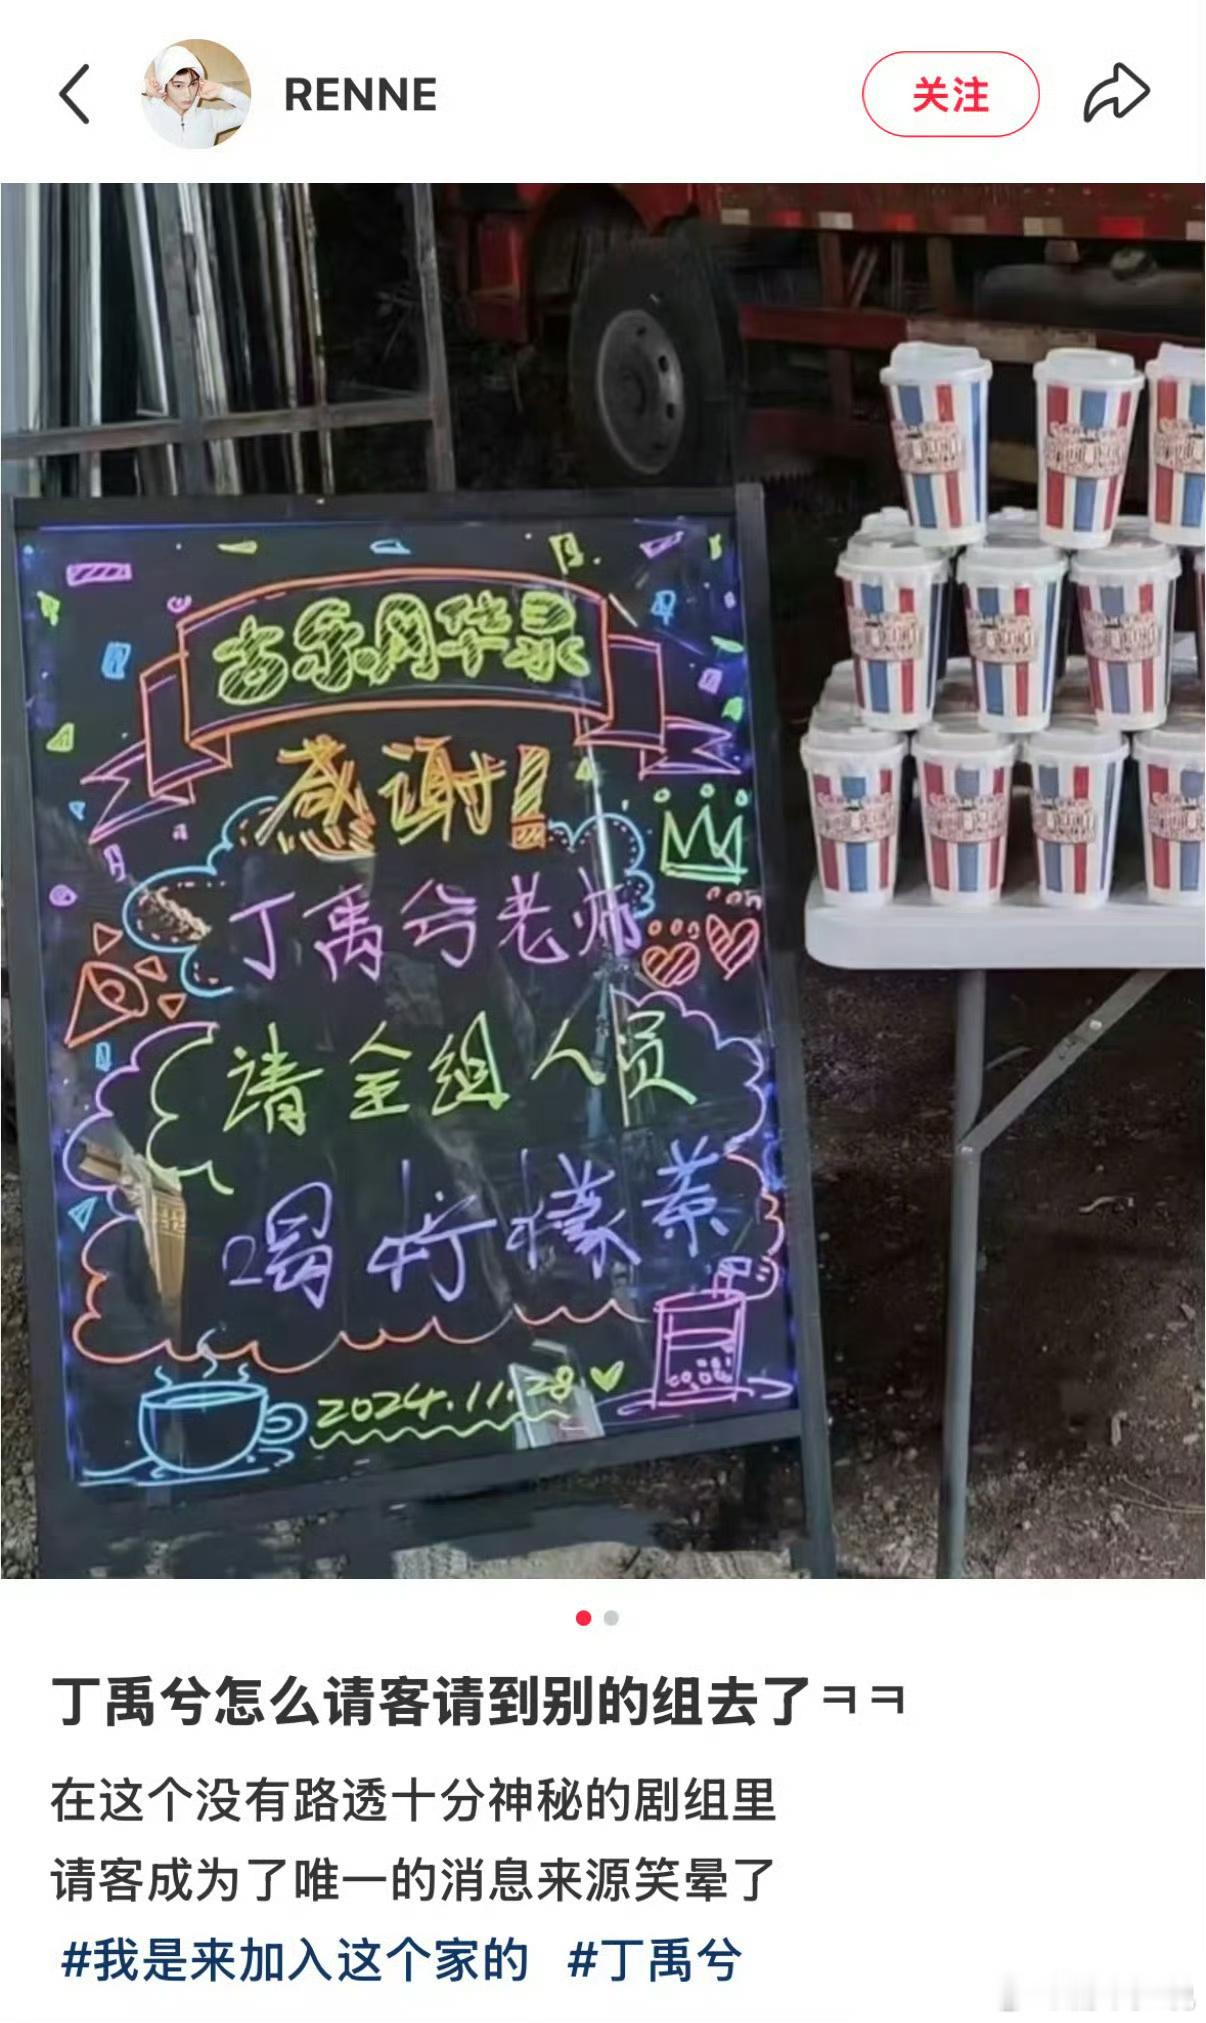 RENNE
关注
古乐风华录
感谢!
丁禹兮老师
请全组人员
喝柠檬茶
2024.11.28
丁禹兮怎么请客请到别的组去了ㅋㅋ
在这个没有路透十分神秘的剧组里
请客成为了唯一的消息来源笑晕了
#我是来加入这个家的 #丁禹兮